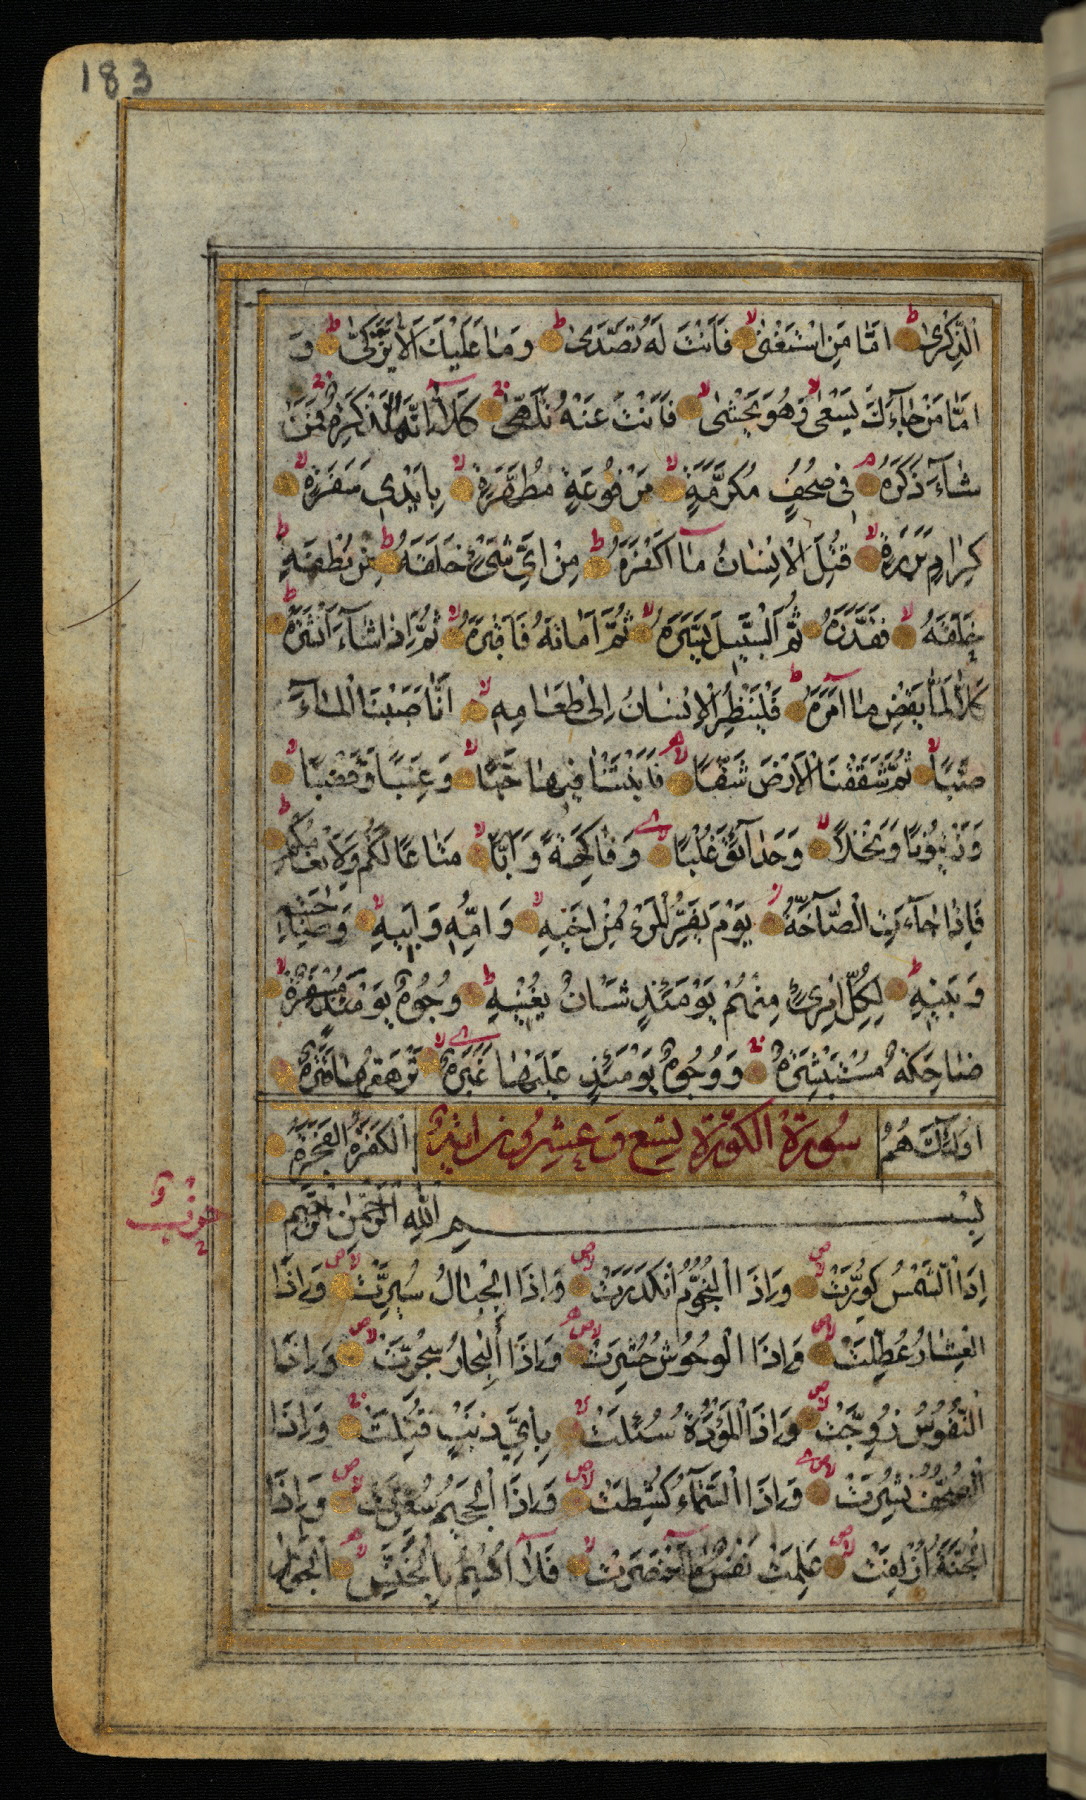 183
الذِّكْرٰى اَمَّا مَنِ اسْتَغْنٰى فَاَنْتَ لَهُ تَصَدّٰى وَمَا عَلَيْكَ اَلَّا يَزَّكّٰى وَ
اَمَّا مَنْ جَآءَكَ يَسْعٰى وَهُوَ يَخْشٰى فَاَنْتَ عَنْهُ تَلَهّٰى كَلَّا اِنَّهَا تَذْكِرَةٌ فَمَنْ
شَآءَ ذَكَرَهُ فِى صُحُفٍ مُكَرَّمَةٍ مَرْفُوعَةٍ مُطَهَّرَةٍ بِاَيْدِى سَفَرَةٍ
كِرَامٍ بَرَرَةٍ قُتِلَ الْاِنْسَانُ مَآ اَكْفَرَهُ مِنْ اَىِّ شَىْءٍ خَلَقَهُ مِنْ نُطْفَةٍ
خَلَقَهُ فَقَدَّرَهُ ثُمَّ السَّبِيلَ يَسَّرَهُ ثُمَّ اَمَاتَهُ فَاَقْبَرَهُ ثُمَّ اِذَا شَآءَ اَنْشَرَهُ
كَلَّا لَمَّا يَقْضِ مَآ اَمَرَهُ فَلْيَنْظُرِ الْاِنْسَانُ اِلٰى طَعَامِهِ اَنَّا صَبَبْنَا الْمَآءَ
صَبًّا ثُمَّ شَقَقْنَا الْاَرْضَ شَقًّا فَاَنْبَتْنَا فِيهَا حَبًّا وَعِنَبًا وَقَضْبًا
وَزَيْتُونًا وَنَخْلًا وَحَدَآئِقَ غُلْبًا وَفَاكِهَةً وَاَبًّا مَتَاعًا لَكُمْ وَلِاَنْعَامِكُمْ
فَاِذَا جَآءَتِ الصَّآخَّةُ يَوْمَ يَفِرُّ الْمَرْءُ مِنْ اَخِيهِ وَاُمِّهِ وَاَبِيهِ وَصَاحِبَتِهِ
وَبَنِيهِ لِكُلِّ امْرِئٍ مِنْهُمْ يَوْمَئِذٍ شَاْنٌ يُغْنِيهِ وُجُوهٌ يَوْمَئِذٍ مُسْفِرَةٌ
ضَاحِكَةٌ مُسْتَبْشِرَةٌ وَوُجُوهٌ يَوْمَئِذٍ عَلَيْهَا غَبَرَةٌ تَرْهَقُهَا قَتَرَةٌ
اُولٰٓئِكَ هُمُ سُورَةُ الكوّرة تسع وعشرون اية الْكَفَرَةُ الْفَجَرَةُ
بِسْمِ اللهِ الرَّحْمٰنِ الرَّحِيمِ
اِذَا الشَّمْسُ كُوِّرَتْ وَاِذَا النُّجُومُ انْكَدَرَتْ وَاِذَا الْجِبَالُ سُيِّرَتْ وَاِذَا
الْعِشَارُ عُطِّلَتْ وَاِذَا الْوُحُوشُ حُشِرَتْ وَاِذَا الْبِحَارُ سُجِّرَتْ وَاِذَا
النُّفُوسُ زُوِّجَتْ وَاِذَا الْمَوْءُدَةُ سُئِلَتْ بِاَىِّ ذَنْبٍ قُتِلَتْ وَاِذَا
الصُّحُفُ نُشِرَتْ وَاِذَا السَّمَآءُ كُشِطَتْ وَاِذَا الْجَحِيمُ سُعِّرَتْ وَاِذَا
الْجَنَّةُ اُزْلِفَتْ عَلِمَتْ نَفْسٌ مَآ اَحْضَرَتْ فَلَآ اُقْسِمُ بِالْخُنَّسِ الْجَوَارِ